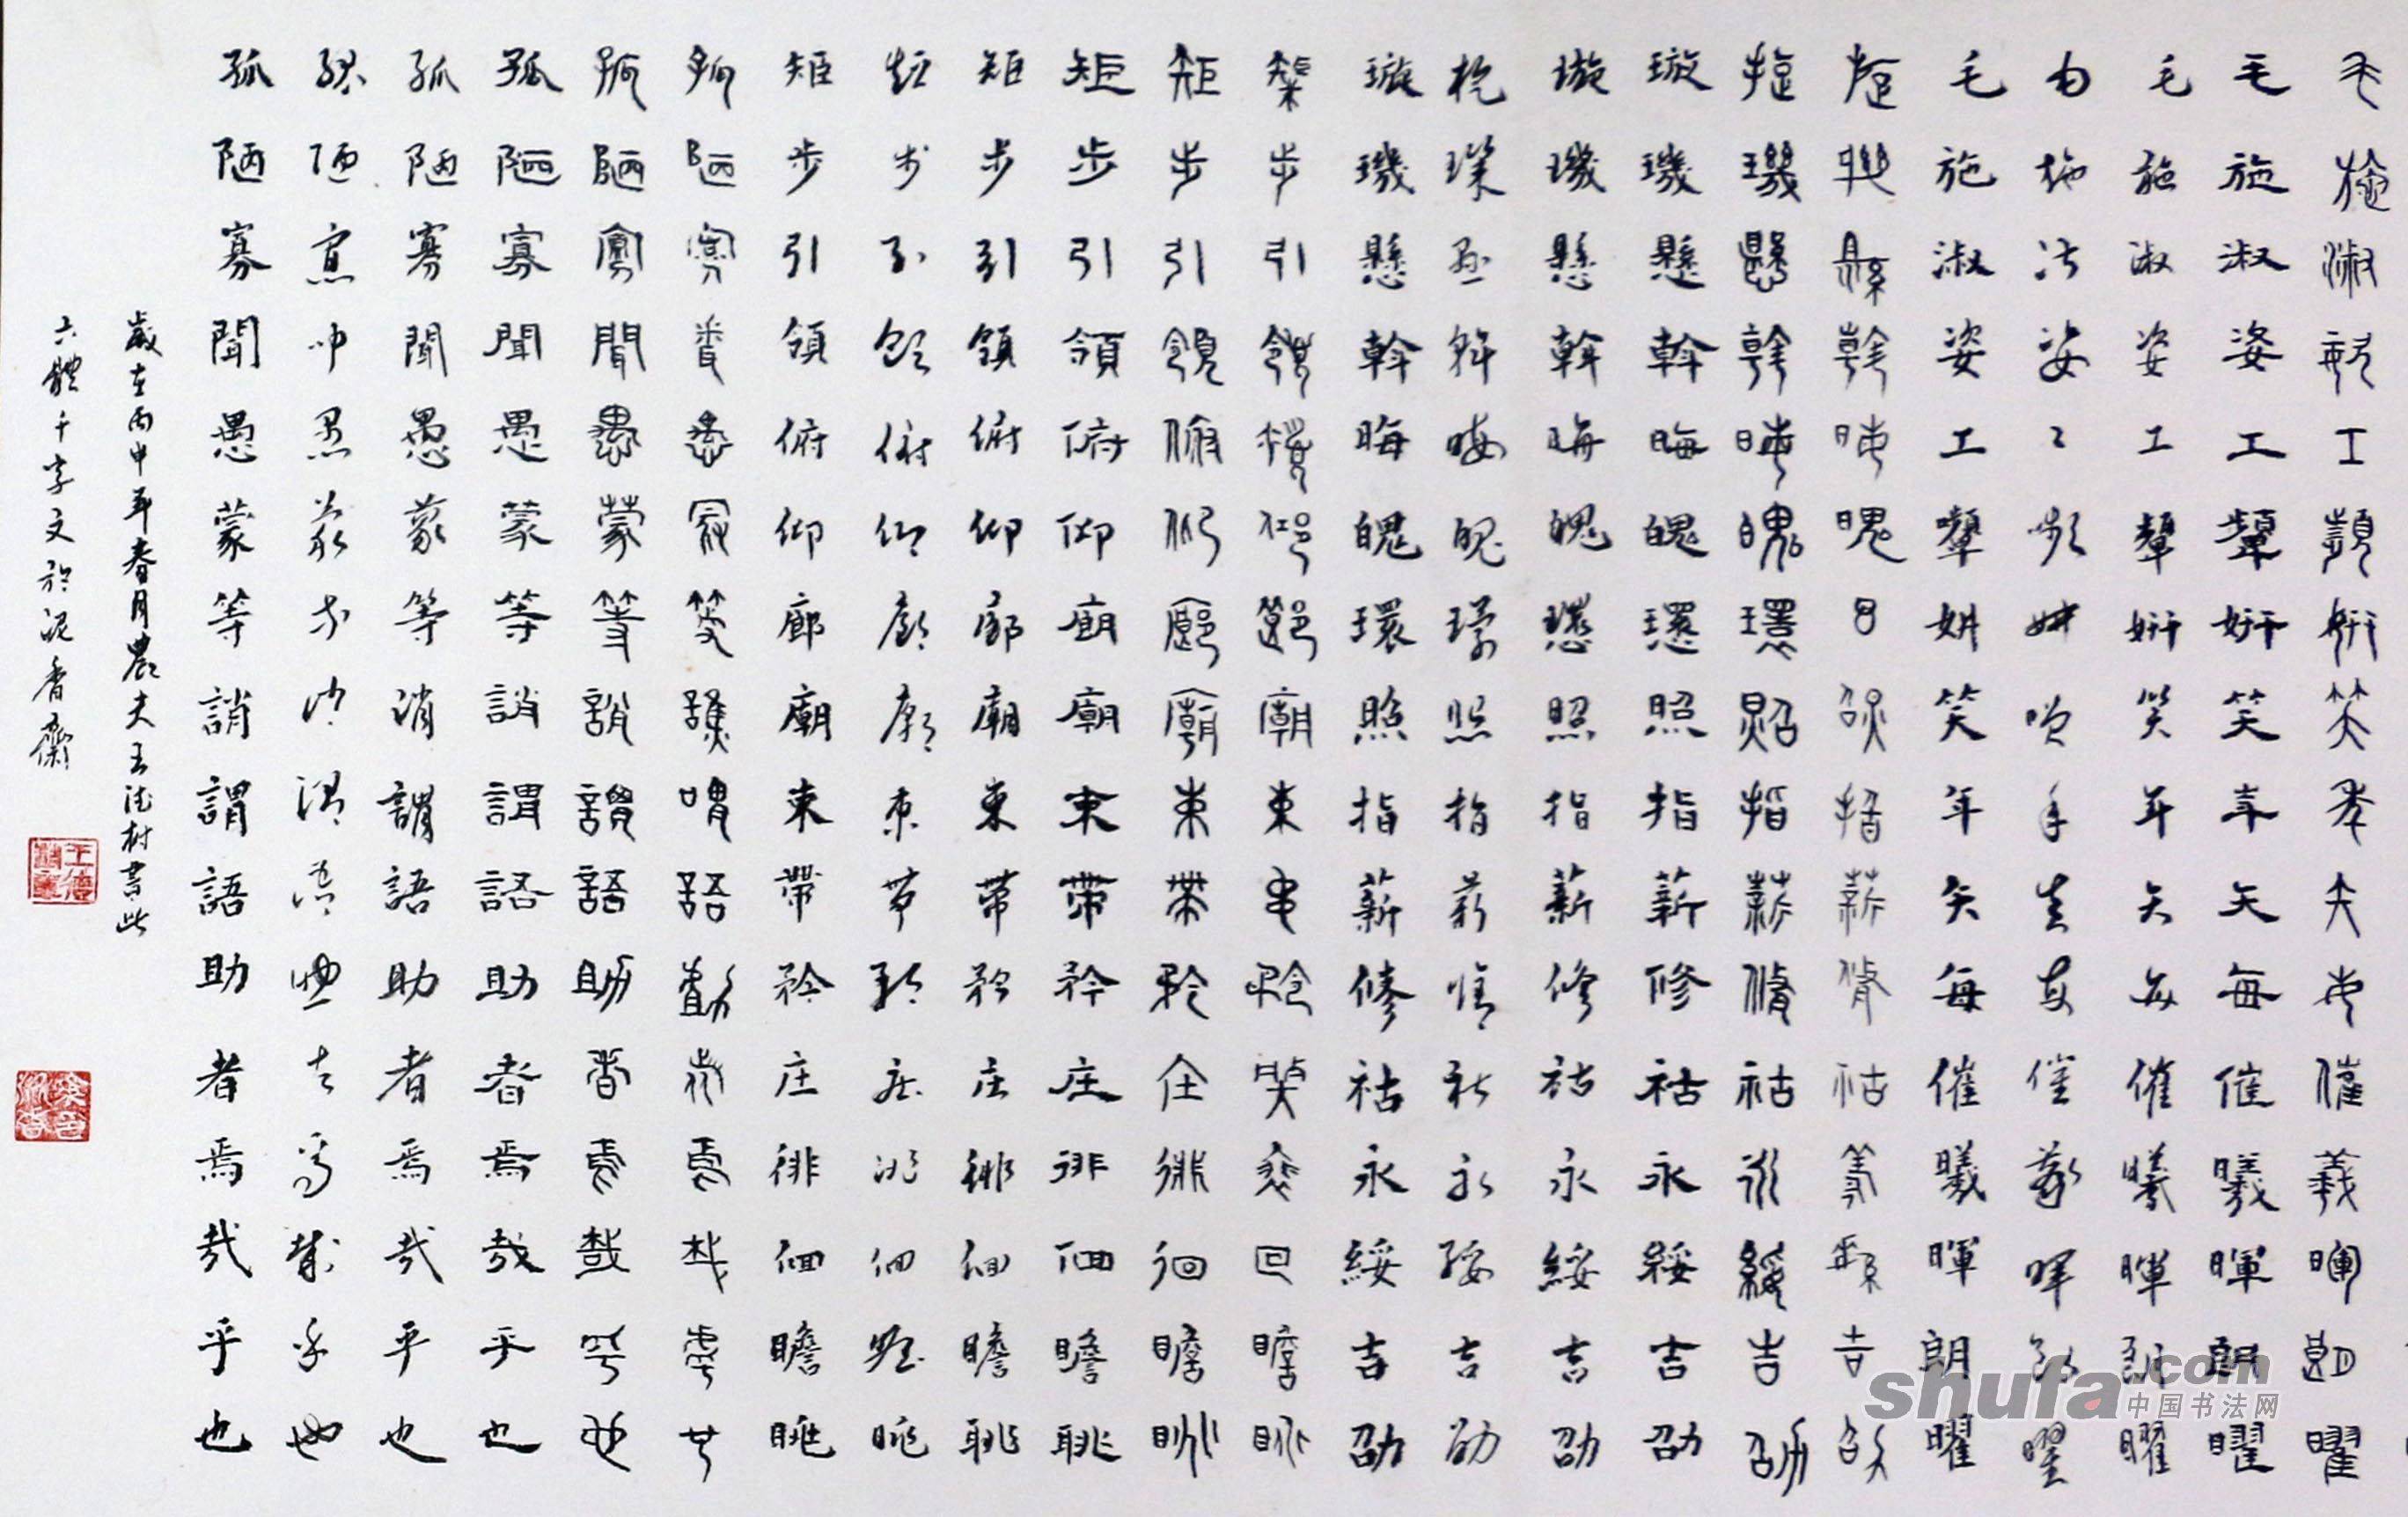 毛施淑姿工顰妍笑年矢每催羲暉朗曜
毛施淑姿工顰妍笑年矢每催曦暉朗曜
毛施淑姿工顰妍笑年矢每催曦暉朗曜
毛施淑姿工顰妍笑年矢每催羲暉朗曜
毛施淑姿工顰妍笑年矢每催曦暉朗曜
璇璣縣斡晦魄環照指薪修祜永綏吉劭
璇璣懸斡晦魄環照指薪修祜永綏吉劭
璇璣懸斡晦魄環照指薪修祜永綏吉劭
璇璣懸斡晦魄環照指薪修祜永綏吉劭
璇璣懸斡晦魄環照指薪修祜永綏吉劭
璇璣懸斡晦魄環照指薪修祜永綏吉劭
矩步引領俯仰廊廟束帶矜莊徘回瞻眺
矩步引領俯仰廊廟束帶矜庄徘徊瞻眺
矩步引領俯仰廟廟束帶矜庄徘徊瞻眺
矩步引領俯仰廊廟束帶矜庄徘徊瞻眺
矩步引領俯仰廊廟束帶矜庄徘徊瞻眺
矩步引領俯仰廊廟束帶矜庄徘徊瞻眺
孤陋寡聞愚蒙等譙謂語助者焉哉乎也
孤陋寡聞愚蒙等誚謂語助者焉哉乎也
孤陋寡聞愚蒙等誚謂語助者焉哉乎也
孤陋寡聞愚蒙等誚謂語助者焉哉乎也
孤陋寡聞愚蒙等誚謂語助者焉哉乎也
孤陋寡聞愚蒙等誚謂語助者焉哉乎也
歲在丙申年春月農夫王德树書此
六體千字文於泥香齋
shufa.com
中国书法网